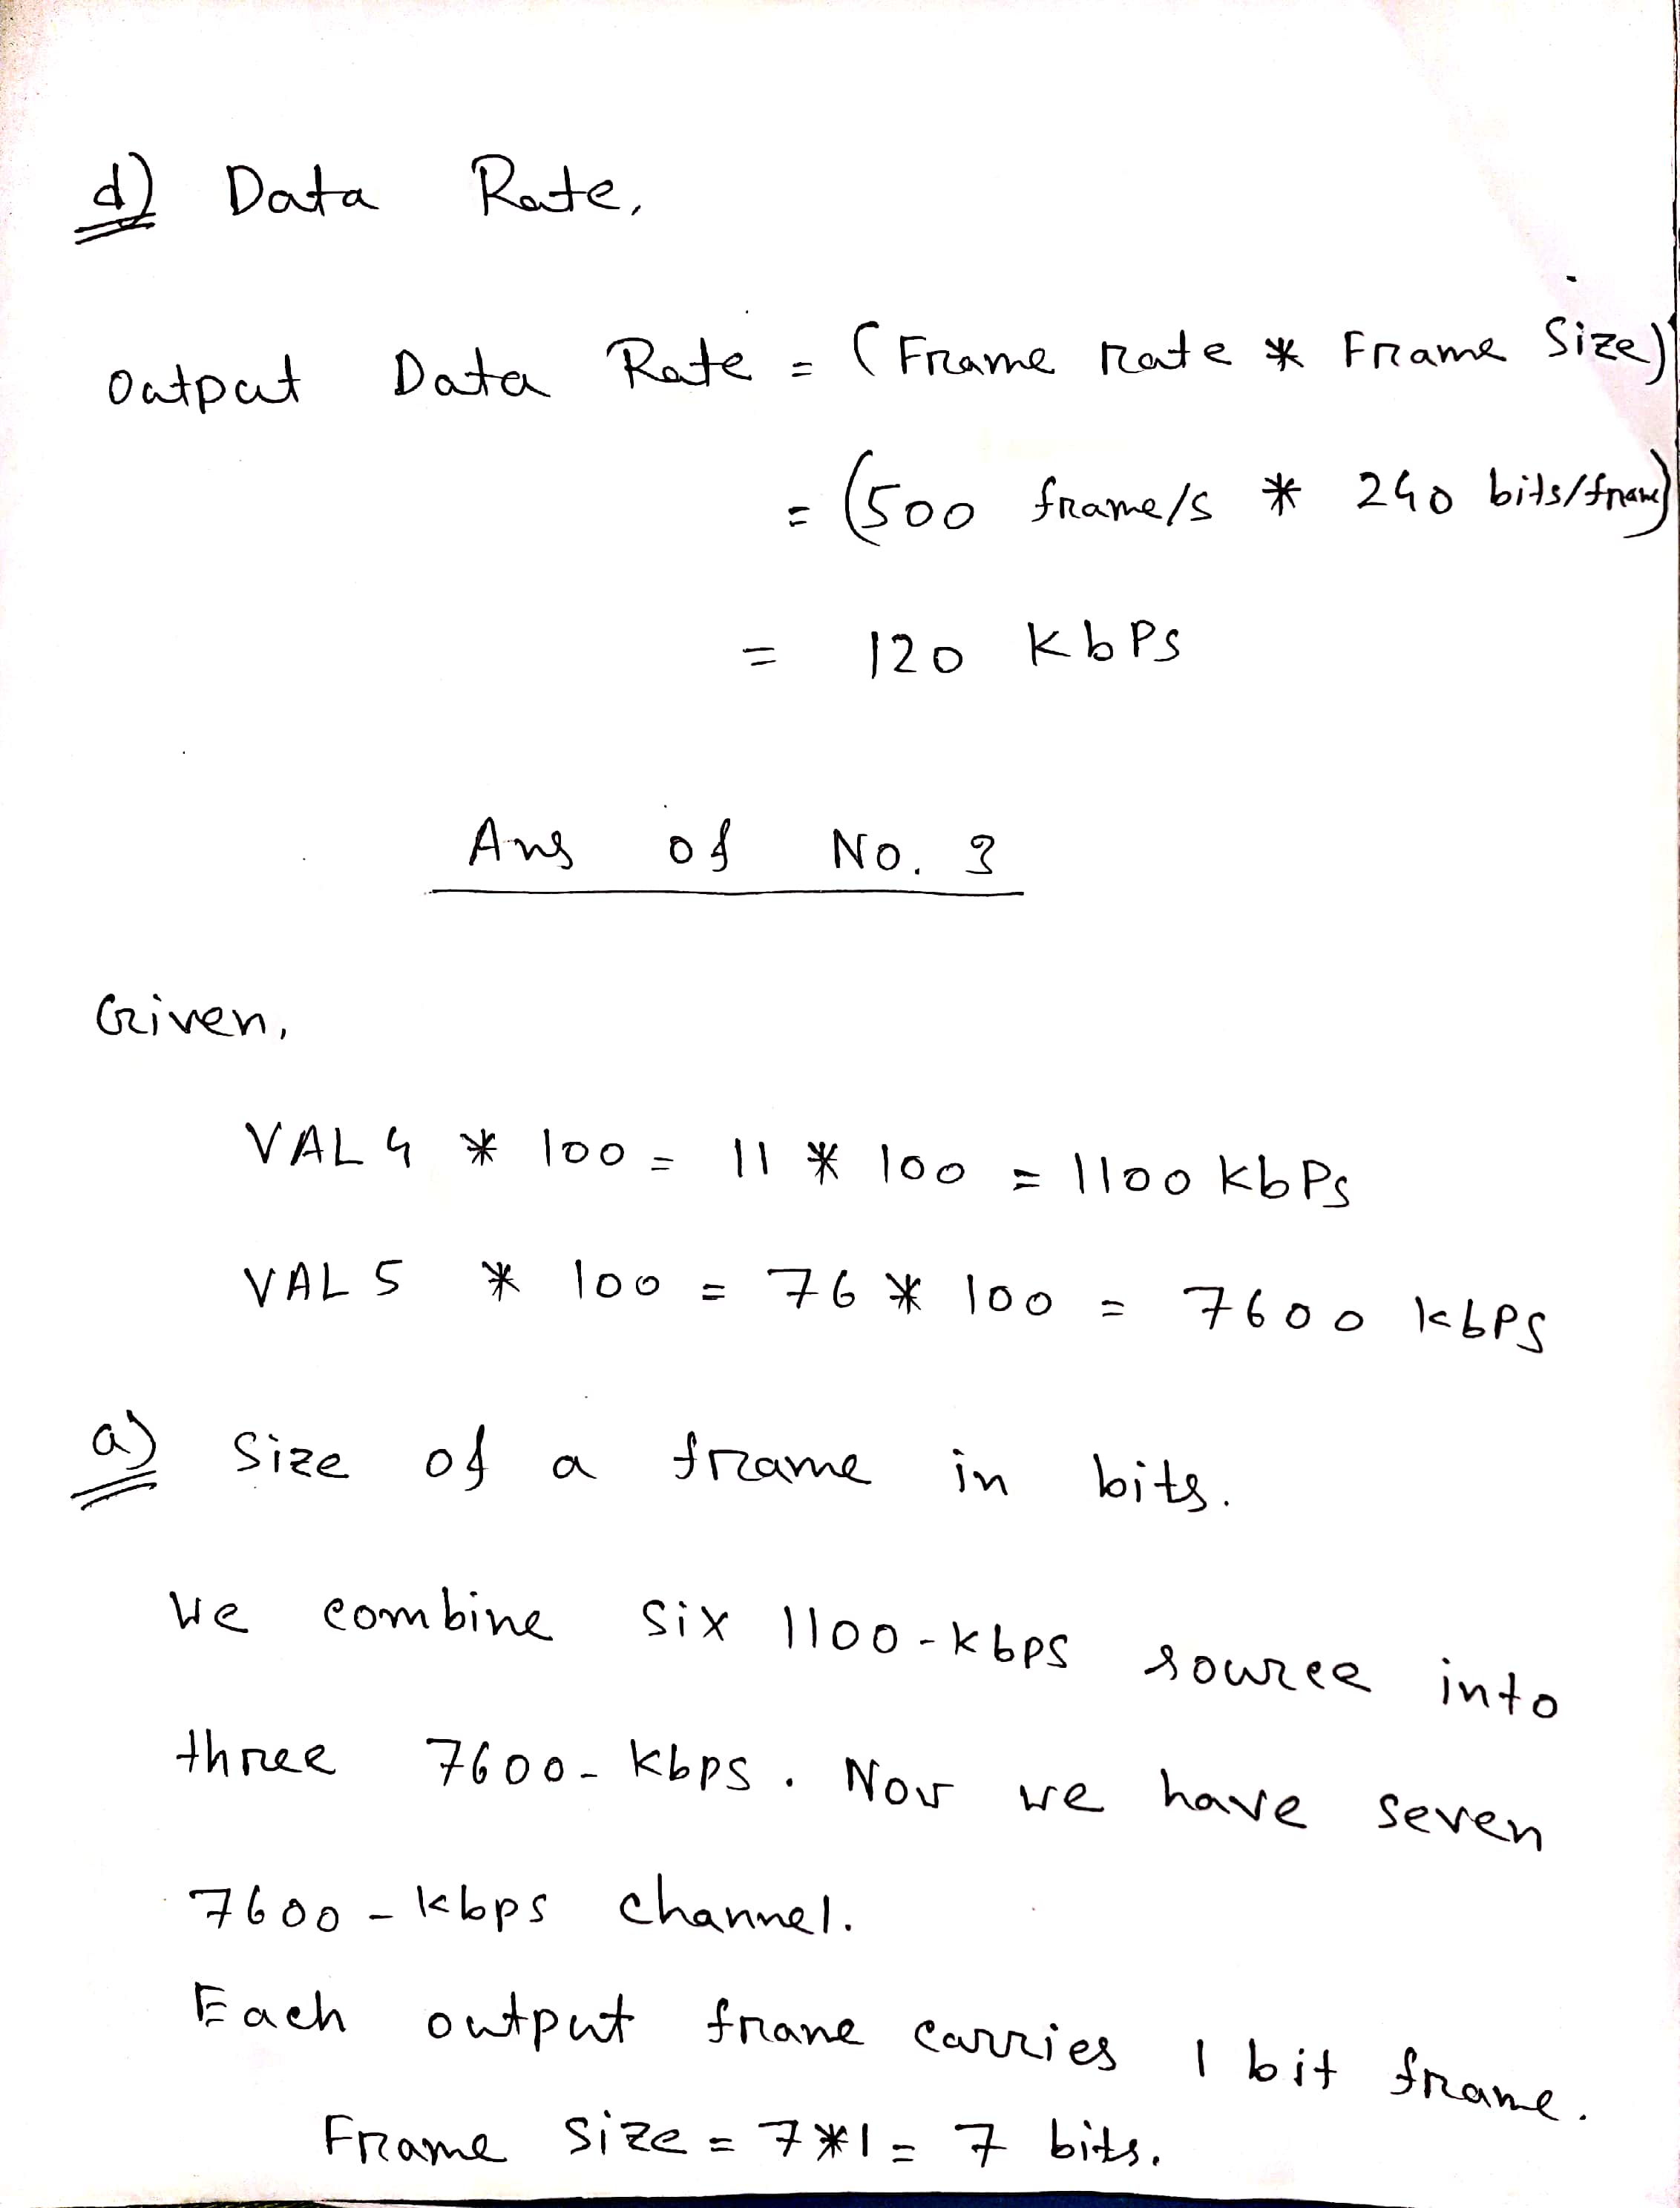 d) Data Rate,
Output Data Rate = (Frame rate * Frame Size)
= (500 frame/s * 240 bits/frame)
= 120 Kbps
Ans of No. 3
Given,
VAL 4 * 100 = 11 * 100 = 1100 kbps
VAL 5 * 100 = 76 * 100 = 7600 kbps
a) Size of a frame in bits.
We combine six 1100-kbps source into
three 7600-kbps. Now we have seven
7600-kbps channel.
Each output frame carries 1 bit frame.
Frame size = 7*1 = 7 bits.